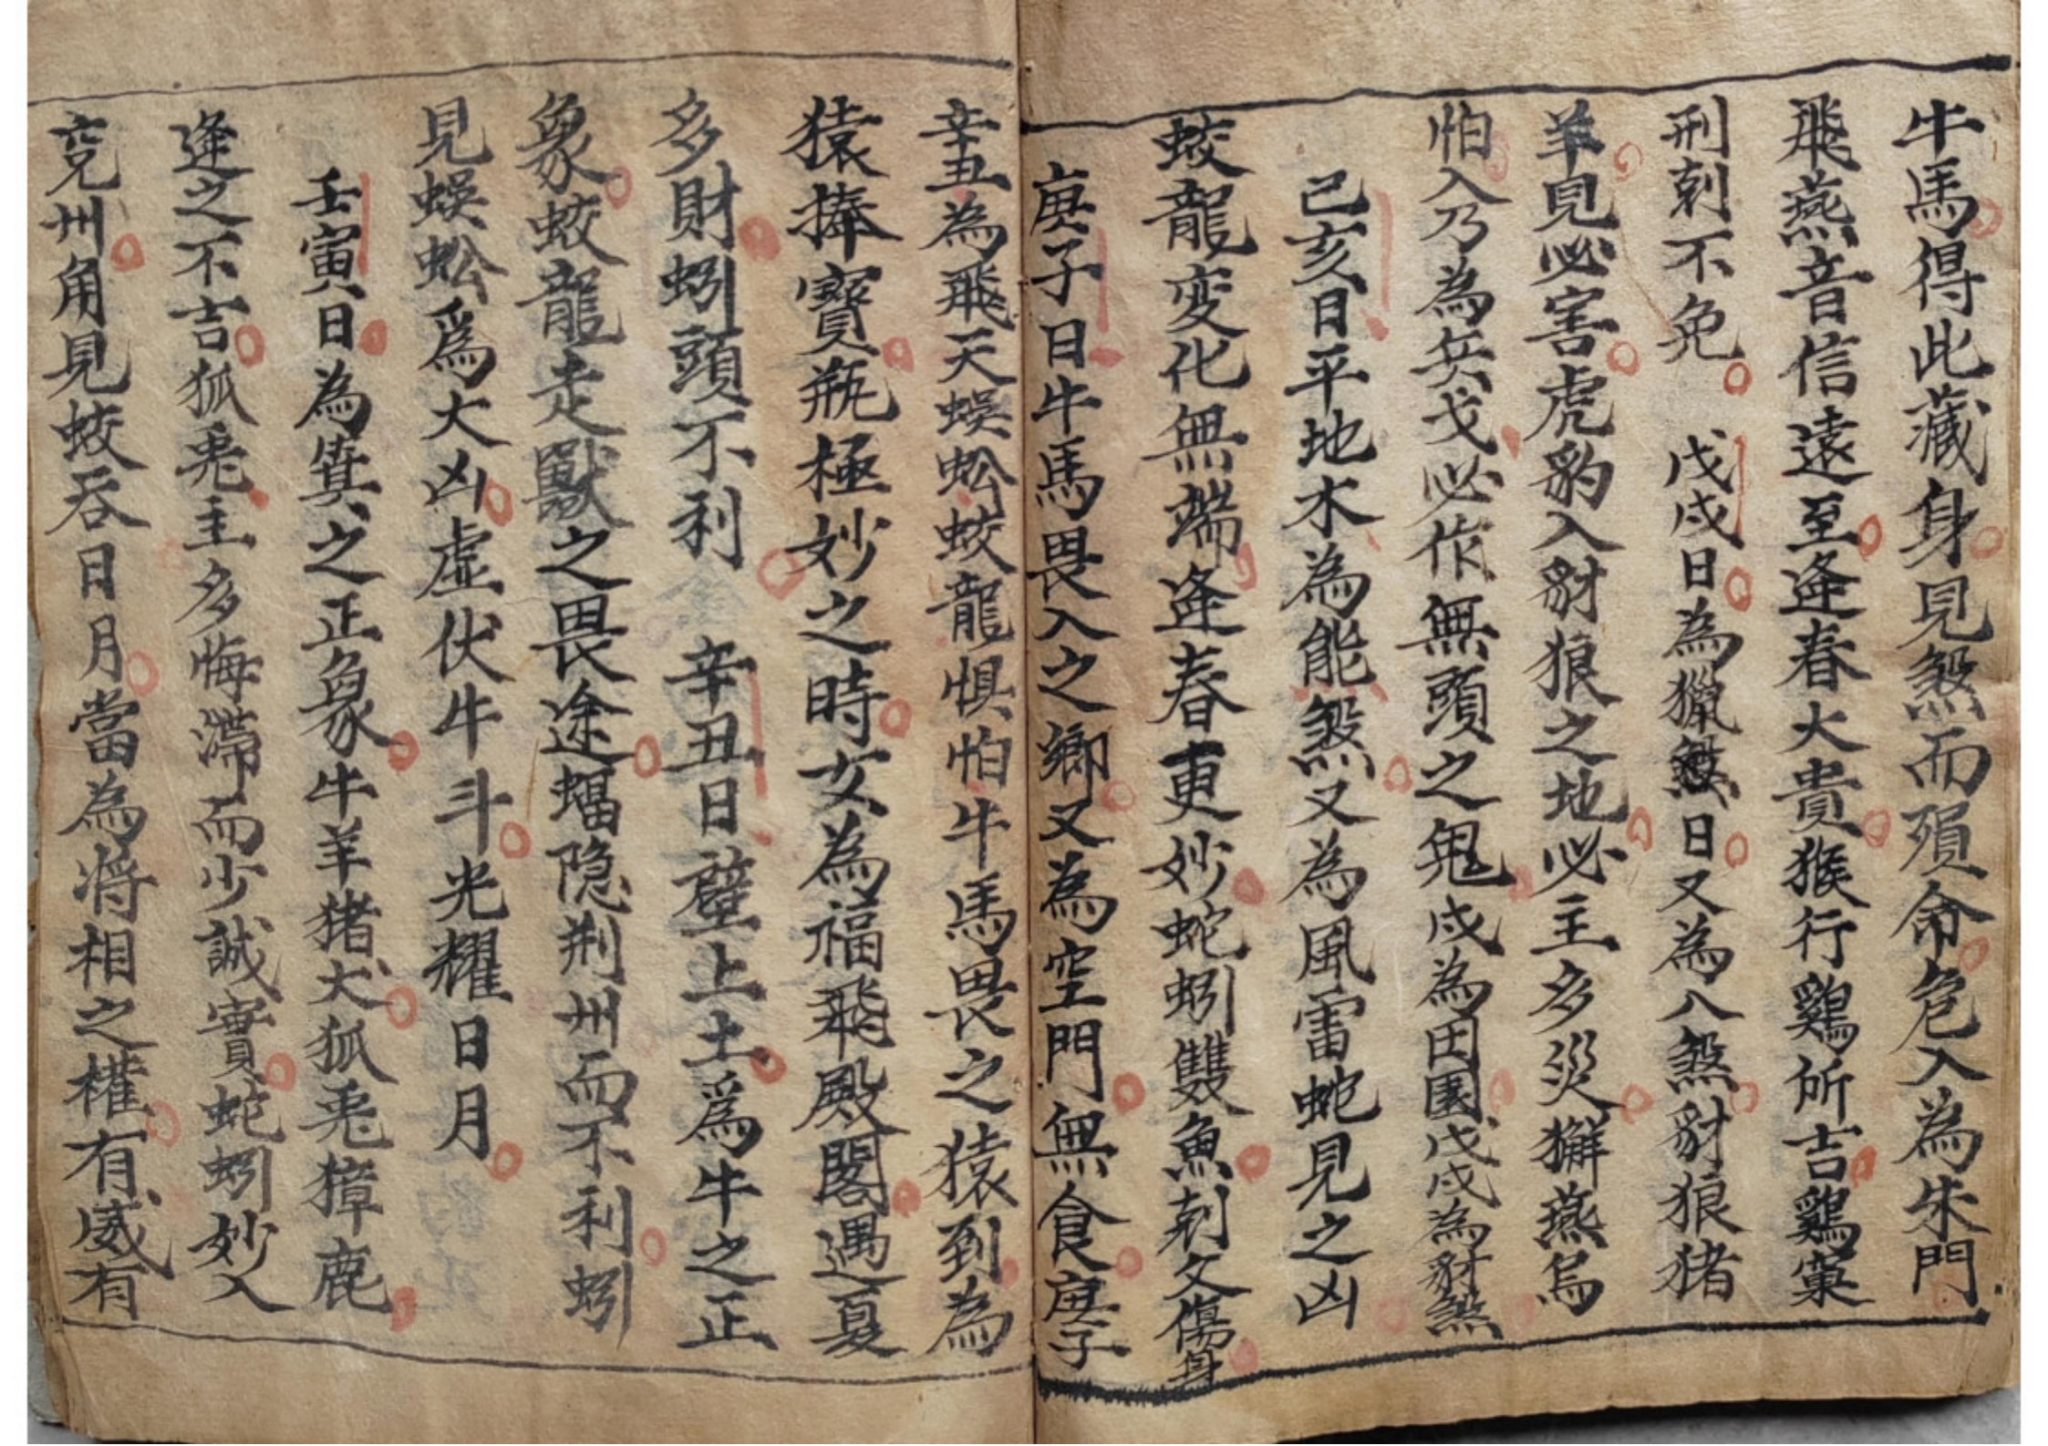 牛馬得此藏身見煞而殞命危入為朱門
飛燕音信遠至逢春大貴猴行鷄所吉鷄窠
刑刺不免 戊戌日為獵煞日又為八煞豺狼猪
羊見必害虎豹入豺狼之地必主多災獬燕烏
怕入乃為兵戈必作無頭之鬼戌為田園戊戌為豺煞
己亥日平地木為能煞又為風雷蛇見之凶
蛟龍変化無端逢春更妙蛇蚓雙魚刺文傷身
庚子日牛馬畏入之鄉又為空門無食庚子
辛丑為飛天蜈蚣蛟龍惧怕牛馬畏之猿到為
猿捧寳瓶極妙之時女為福飛殿閣遇夏
多財蚓頭不利 辛丑日壁上土爲牛之正
象蛟龍走獸之畏途蝠隐荆州而不利蚓
見蜈蚣爲大凶虛伏牛斗光耀日月
壬寅日為箕之正象牛羊猪犬狐兎獐鹿
逢之不吉狐兎主多悔滯而少誠實蛇蚓妙入
兖州角見蛟吞日月當為将相之權有威有